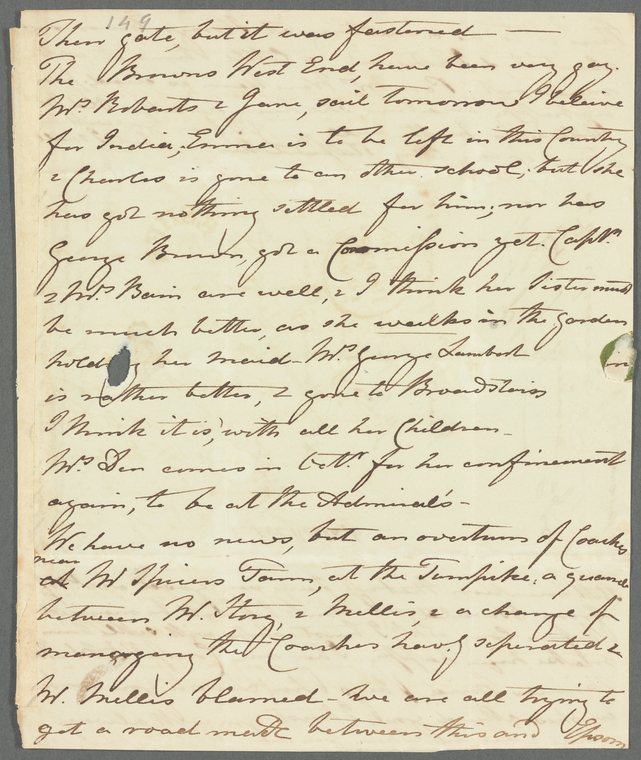 149
Their gate, but it was fastened —
The Browns West End, have been very gay.
Mrs. Roberts & Jane, sail tomorrow I believe
for India, Emma is to be left in this Country
& Charles is gone to an other school; but she
has got nothing settled for him; nor has
George Brown, got a Commission yet. Captn.
& Mrs. Bain are well, & I think her Sister must
be much better, as she walks in the garden
hold g her maid - Mrs. George Lambert in
is rather better, & gone to Broadstairs
I think it is, with all her Children -
Mrs. Den comes in Octr. for her confinement
again, to be at the Admiral's -
We have no news, but an overturn of Coaches
near
at W Spicers Farm, at the Turnpike: a quarrel
between W. & Mellis, & a change of
managing the Coaches havg seperated &
W. Mellis blamed - We are all trying to
get a road made between this and Epsom